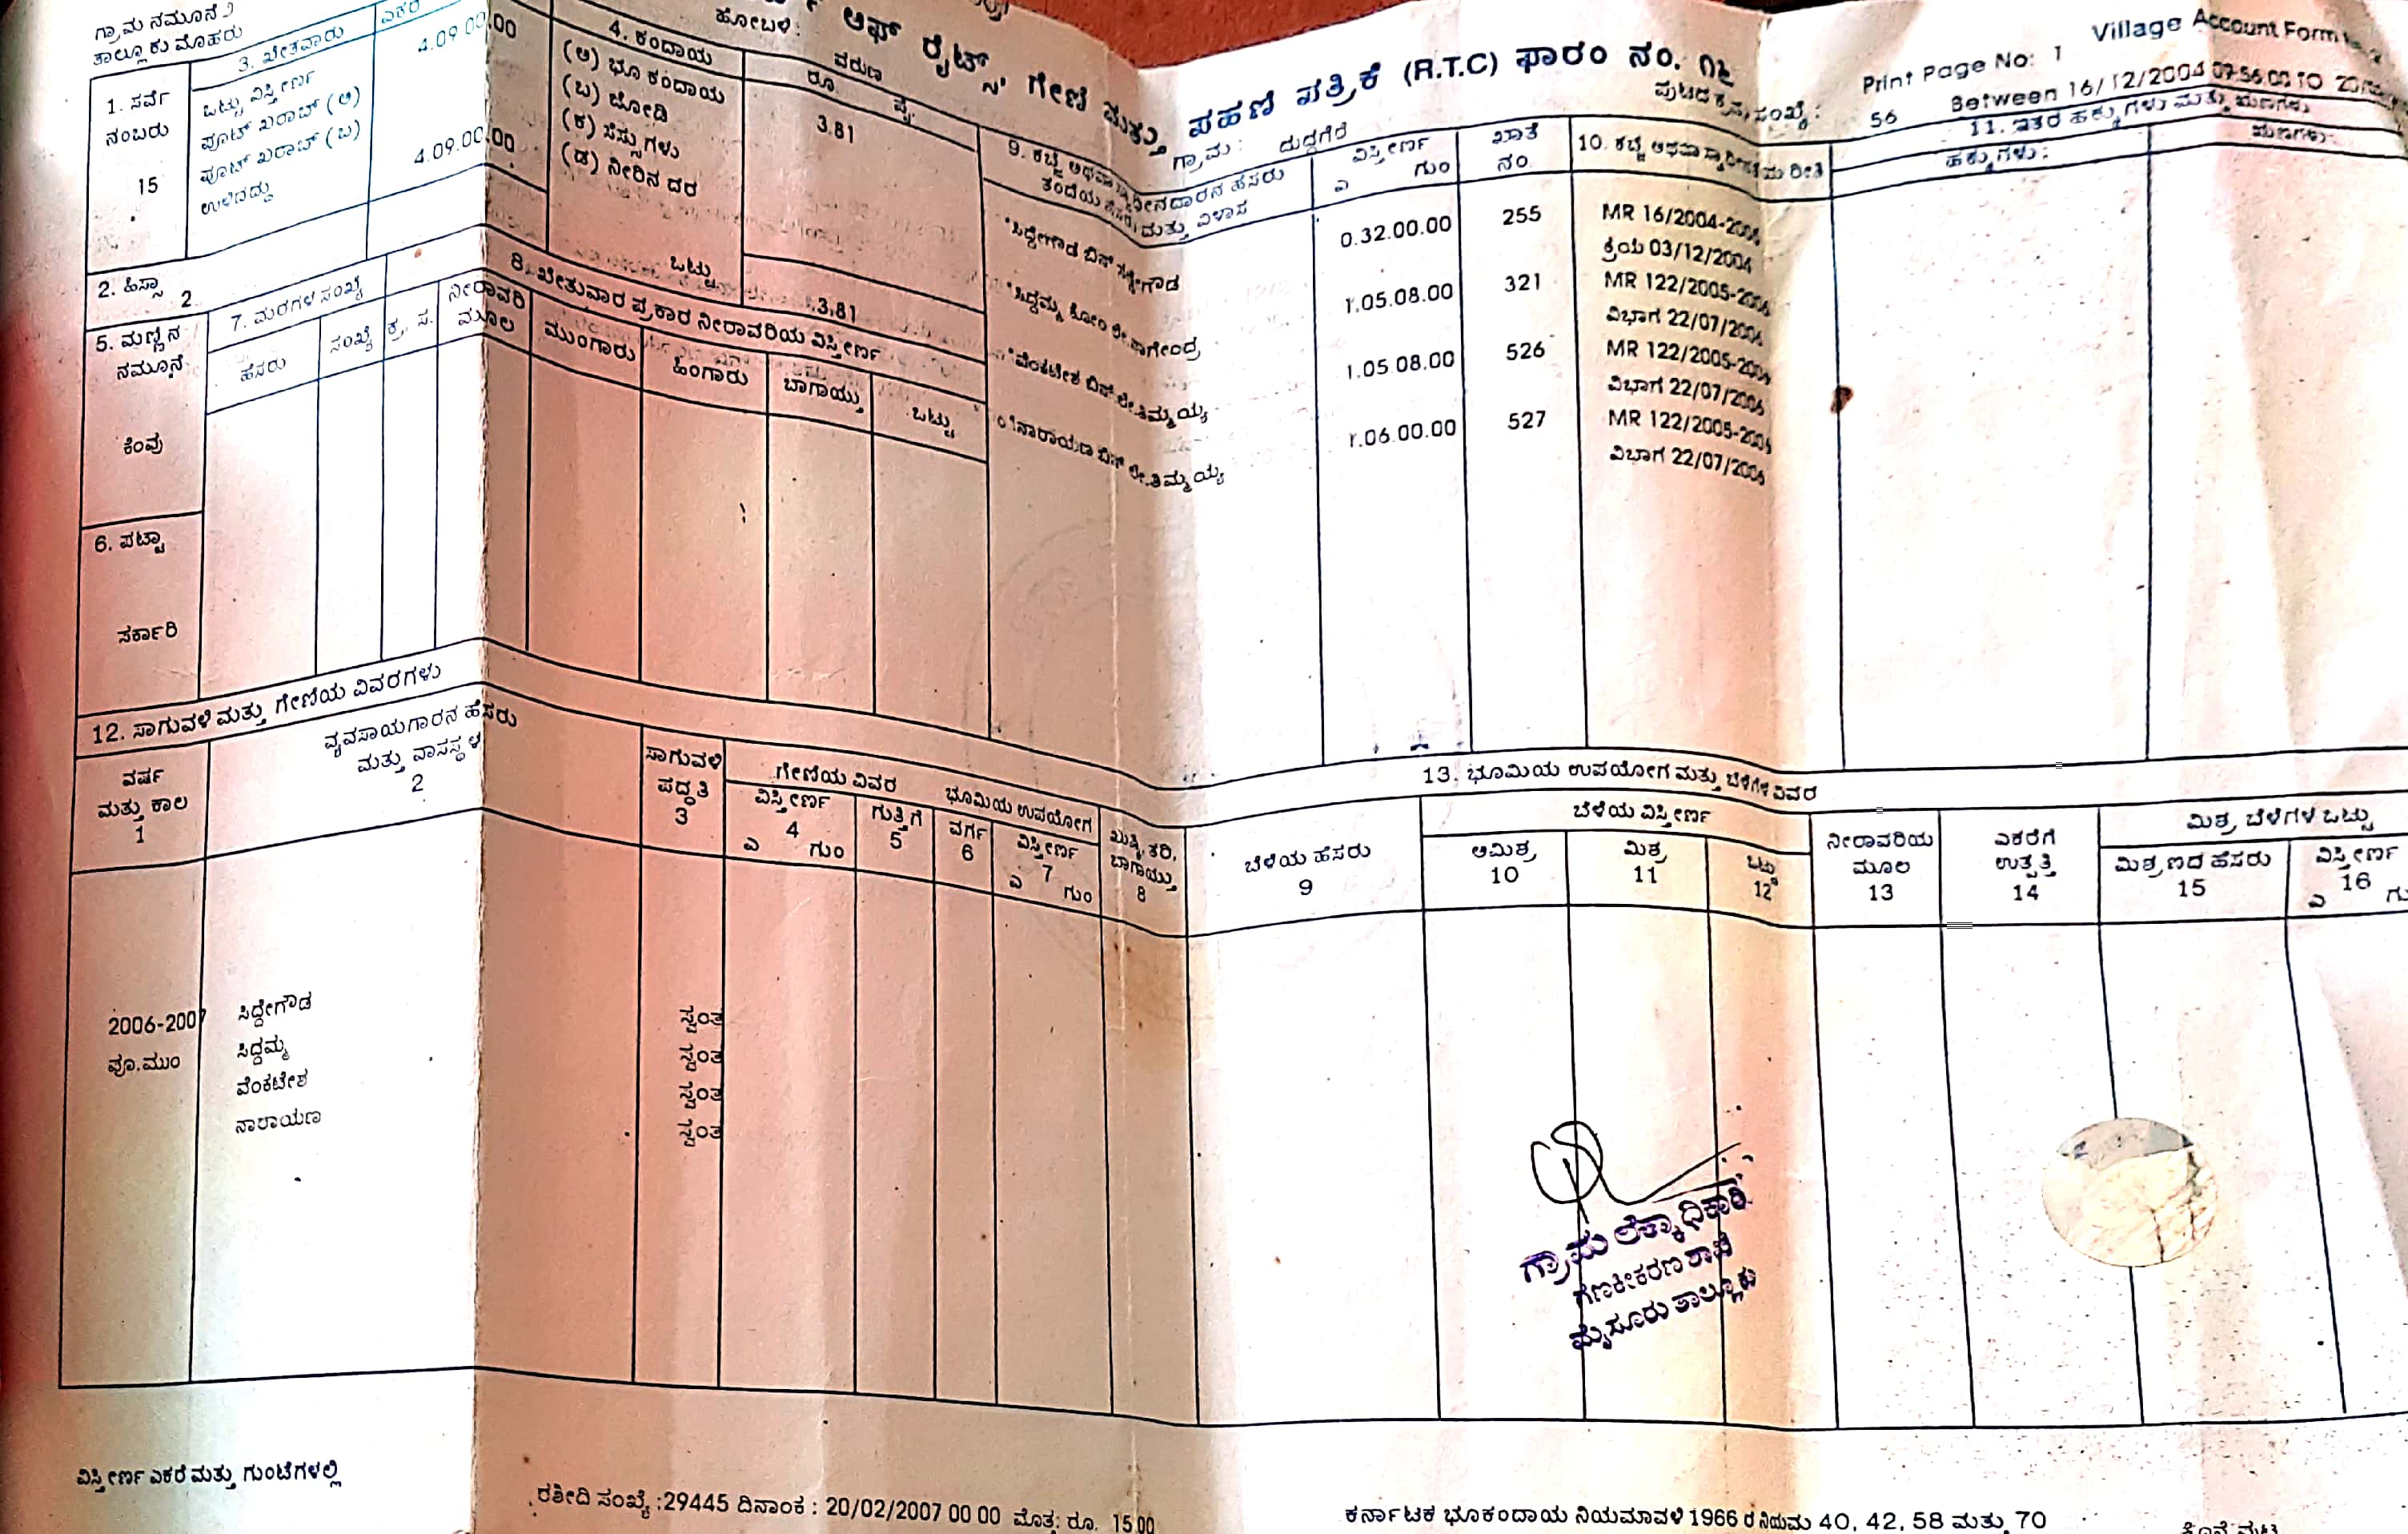 ಗ್ರಾಮ ನಮೂನೆ 2
Village Account Form
ಆಫ್ ರೈಟ್ಸ್, ಗೇಣಿ ಮತ್ತು ಪಹಣಿ ಪತ್ರಿಕೆ (R.T.C) ಫಾರಂ ನಂ. ೧೬
Print Page No: 1
ತಾಲ್ಲೂಕು
ಹೋಬಳಿ: ವರುಣ
ಗ್ರಾಮ: ದುದ್ದಗೆರೆ
ಪುಟದ ಕ್ರಮ ಸಂಖ್ಯೆ: 56
Between 16/12/2004
1. ಸರ್ವೆ ನಂಬರು
15
2. ಹಿಸ್ಸಾ
2
3. ಖೇತವಾರು
ಎಕರೆ
ಒಟ್ಟು ವಿಸ್ತೀರ್ಣ 4.09.00.00
ಪೂಟ್ ಖರಾಬ್ (ಅ)
ಪೂಟ್ ಖರಾಬ್ (ಬ)
ಉಳಿದದ್ದು 4.09.00.00
4. ಕಂದಾಯ ರೂ. ಪೈ.
(ಅ) ಭೂ ಕಂದಾಯ 3.81
(ಬ) ಜೋಡಿ
(ಕ) ಸೆಸ್ಸುಗಳು
(ಡ) ನೀರಿನ ದರ
ಒಟ್ಟು 3.81
5. ಮಣ್ಣಿನ ನಮೂನೆ
ಕೆಂಪು
6. ಪಟ್ಟಾ
ಸರ್ಕಾರಿ
7. ಮರಗಳ ಸಂಖ್ಯೆ
ಹೆಸರು ಸಂಖ್ಯೆ
8. ಖೇತುವಾರ ಪ್ರಕಾರ ನೀರಾವರಿಯ ವಿಸ್ತೀರ್ಣ
ಕ್ರ. ಸ. ನೀರಾವರಿ ಮೂಲ ಮುಂಗಾರು ಹಿಂಗಾರು ಬಾಗಾಯ್ತು ಒಟ್ಟು
9. ಕಬ್ಜೆ ಅಥವಾ ಸ್ವಾಧೀನದಾರನ ಹೆಸರು
ತಂದೆಯ ಹೆಸರು ಮತ್ತು ವಿಳಾಸ
ವಿಸ್ತೀರ್ಣ
ಎ ಗುಂ
ಖಾತೆ ನಂ
10. ಕಬ್ಜೆ ಅಥವಾ ಸ್ವಾಧೀನತೆಯ ರೀತಿ
11. ಇತರ ಹಕ್ಕುಗಳು ಮತ್ತು ಋಣಗಳು
ಹಕ್ಕುಗಳು: ಋಣಗಳು:
ಸಿದ್ದೇಗೌಡ ಬಿನ್ 0.32.00.00 255 MR 16/2004-
ಕ್ರಯ 03/12/2004
ಸಿದ್ದಮ್ಮ ಕೋಂ ಲೇ.ನಾಗೇಂದ್ರ 1.05.08.00 321 MR 122/2005-2006
ವಿಭಾಗ 22/07/2006
ವೆಂಕಟೇಶ ಬಿನ್ ಲೇ.ತಿಮ್ಮಯ್ಯ 1.05.08.00 526 MR 122/2005-2006
ವಿಭಾಗ 22/07/2006
ನಾರಾಯಣ ಬಿನ್ ಲೇ.ತಿಮ್ಮಯ್ಯ 1.06.00.00 527 MR 122/2005-2006
ವಿಭಾಗ 22/07/2006
12. ಸಾಗುವಳಿ ಮತ್ತು ಗೇಣಿಯ ವಿವರಗಳು
13. ಭೂಮಿಯ ಉಪಯೋಗ ಮತ್ತು ಬೆಳೆಗಳ ವಿವರ
ವರ್ಷ ಮತ್ತು ಕಾಲ 1
ವ್ಯವಸಾಯಗಾರನ ಹೆಸರು ಮತ್ತು ವಾಸಸ್ಥಳ 2
ಸಾಗುವಳಿ ಪದ್ಧತಿ 3
ಗೇಣಿಯ ವಿವರ
ವಿಸ್ತೀರ್ಣ 4 ಎ ಗುಂ
ಗುತ್ತಿಗೆ 5
ಭೂಮಿಯ ಉಪಯೋಗ
ವರ್ಗ 6
ವಿಸ್ತೀರ್ಣ 7 ಎ ಗುಂ
ಖುಷ್ಕಿ, ತರಿ, ಬಾಗಾಯ್ತು 8
ಬೆಳೆಯ ಹೆಸರು 9
ಬೆಳೆಯ ವಿಸ್ತೀರ್ಣ
ಅಮಿಶ್ರ 10
ಮಿಶ್ರ 11
ಒಟ್ಟು 12
ನೀರಾವರಿಯ ಮೂಲ 13
ಎಕರೆಗೆ ಉತ್ಪತ್ತಿ 14
ಮಿಶ್ರ ಬೆಳೆಗಳ ಒಟ್ಟು
ಮಿಶ್ರಣದ ಹೆಸರು 15
ವಿಸ್ತೀರ್ಣ 16
2006-2007 ಸಿದ್ದೇಗೌಡ ಸ್ವಂತ
ಪೂ.ಮುಂ ಸಿದ್ದಮ್ಮ ಸ್ವಂತ
ವೆಂಕಟೇಶ ಸ್ವಂತ
ನಾರಾಯಣ ಸ್ವಂತ
ಗ್ರಾಮ ಲೆಕ್ಕಾಧಿಕಾರಿ
ಗಣಕೀಕರಣ ಶಾಖೆ
ಮೈಸೂರು ತಾಲ್ಲೂಕು
ವಿಸ್ತೀರ್ಣ ಎಕರೆ ಮತ್ತು ಗುಂಟೆಗಳಲ್ಲಿ
ರಶೀದಿ ಸಂಖ್ಯೆ :29445 ದಿನಾಂಕ : 20/02/2007 00 00 ಮೊತ್ತ: ರೂ. 15.00
ಕರ್ನಾಟಕ ಭೂಕಂದಾಯ ನಿಯಮಾವಳಿ 1966 ರ ನಿಯಮ 40, 42, 58 ಮತ್ತು 70